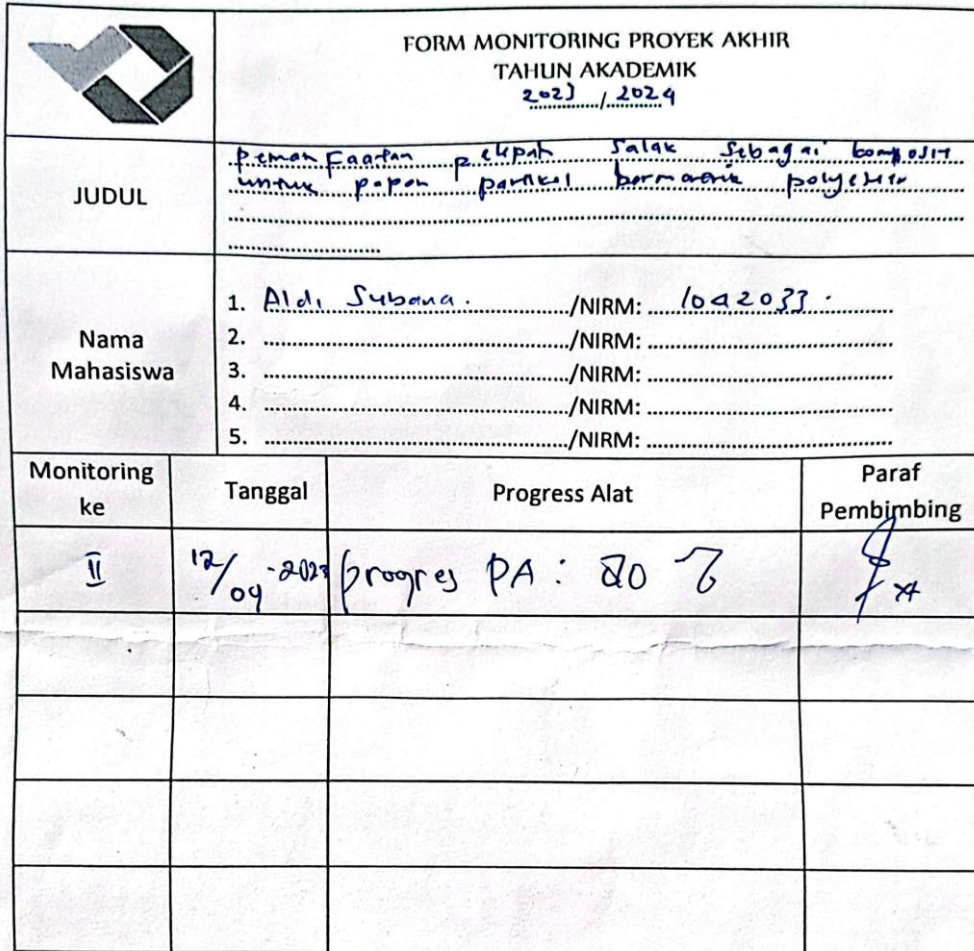 FORM MONITORING PROYEK AKHIR
TAHUN AKADEMIK
2023 / 2024
JUDUL
pemanfaatan pelepah salak sebagai komposit
untuk papan partikel bermatrik polyester
Nama
Mahasiswa
1. Aldi Subana. /NIRM: 1042033.
2. /NIRM:
3. /NIRM:
4. /NIRM:
5. /NIRM:
Monitoring
ke
Tanggal
Progress Alat
Paraf
Pembimbing
II 12/09-2023 progres PA: 80 %